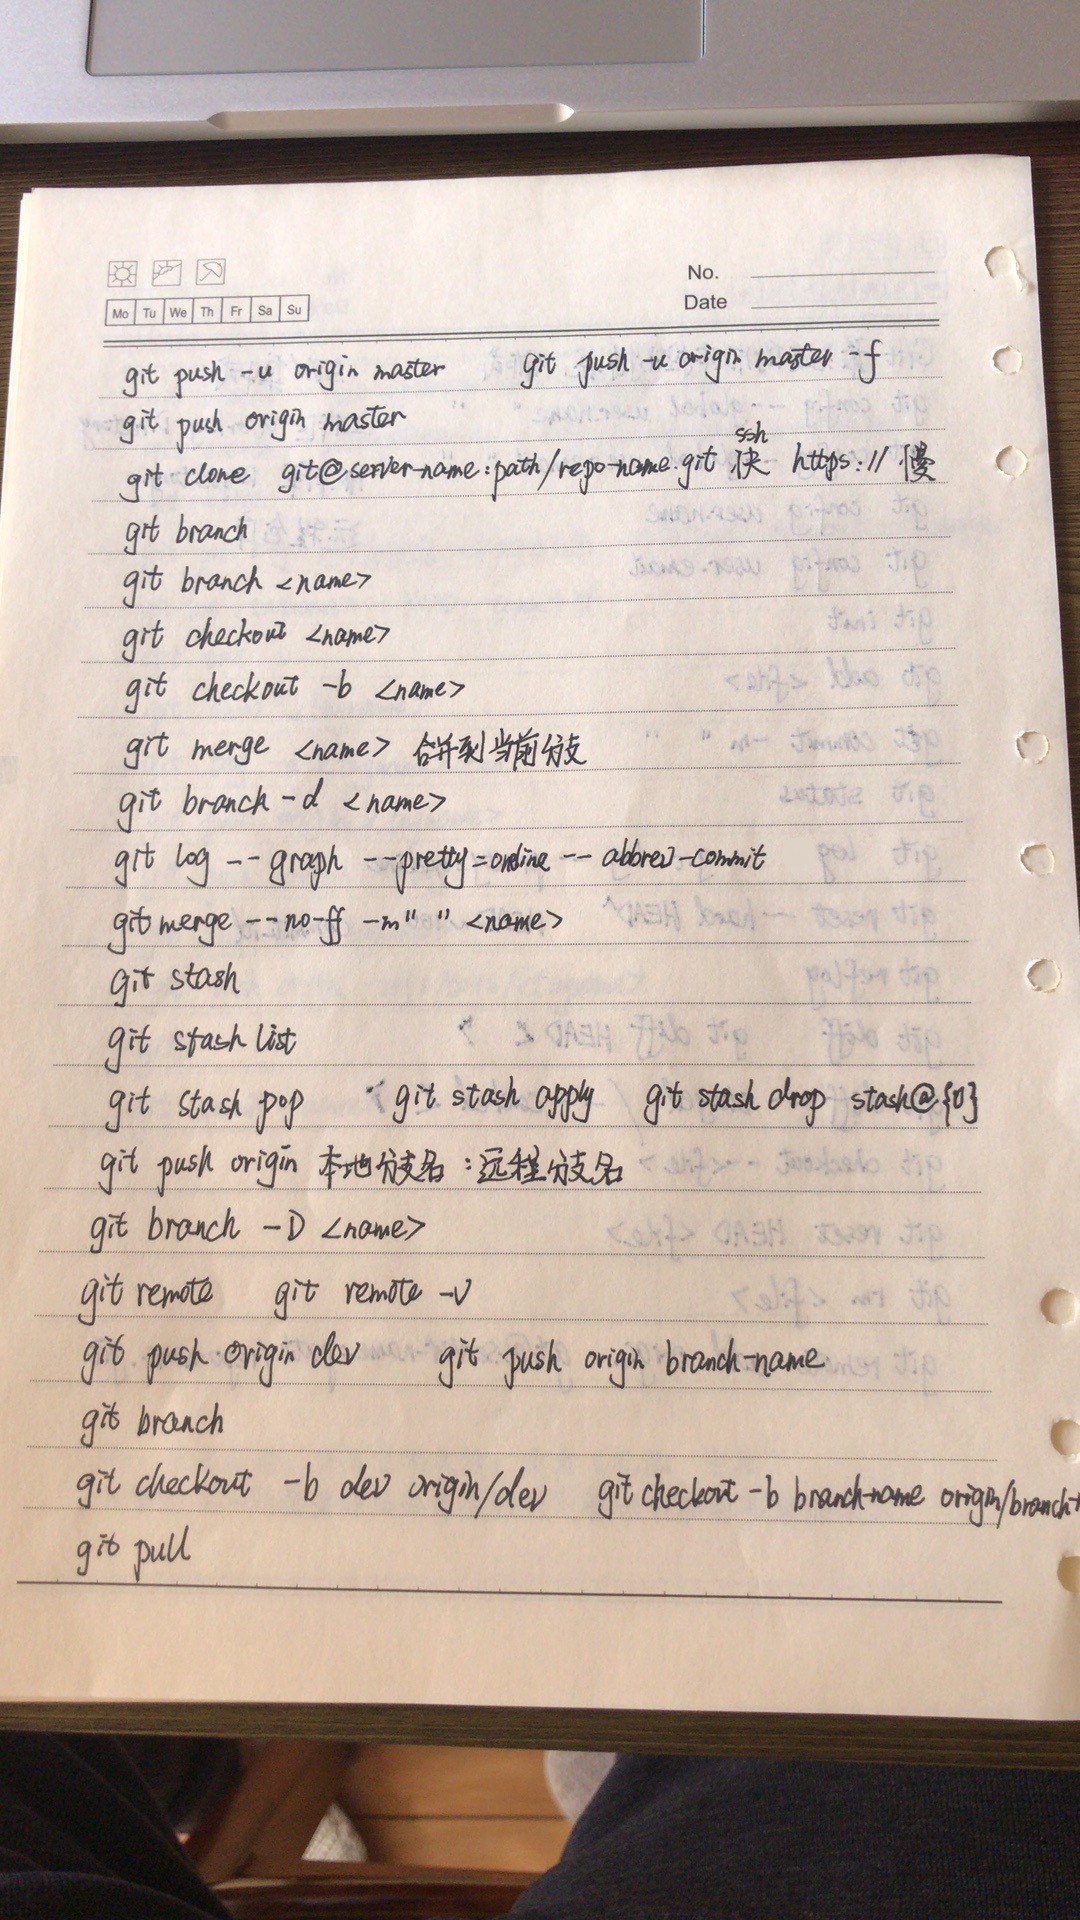 No.
Date
Mo Tu We Th Fr Sa Su
git push -u origin master git push -u origin master -f
git push origin master
ssh
git clone git@server-name:path/repo-name.git 快 https:// 慢
git branch
git branch <name>
git checkout <name>
git checkout -b <name>
git merge <name> 合并到当前分支
git branch -d <name>
git log --graph --pretty=online --abbrev-commit
git merge --no-ff -m" " <name>
git stash
git stash list
git stash pop git stash apply git stash drop stash@{0}
git push origin 本地分支名:远程分支名
git branch -D <name>
git remote git remote -v
git push origin dev git push origin branch-name
git branch
git checkout -b dev origin/dev git checkout -b branch-name origin/branch-
git pull